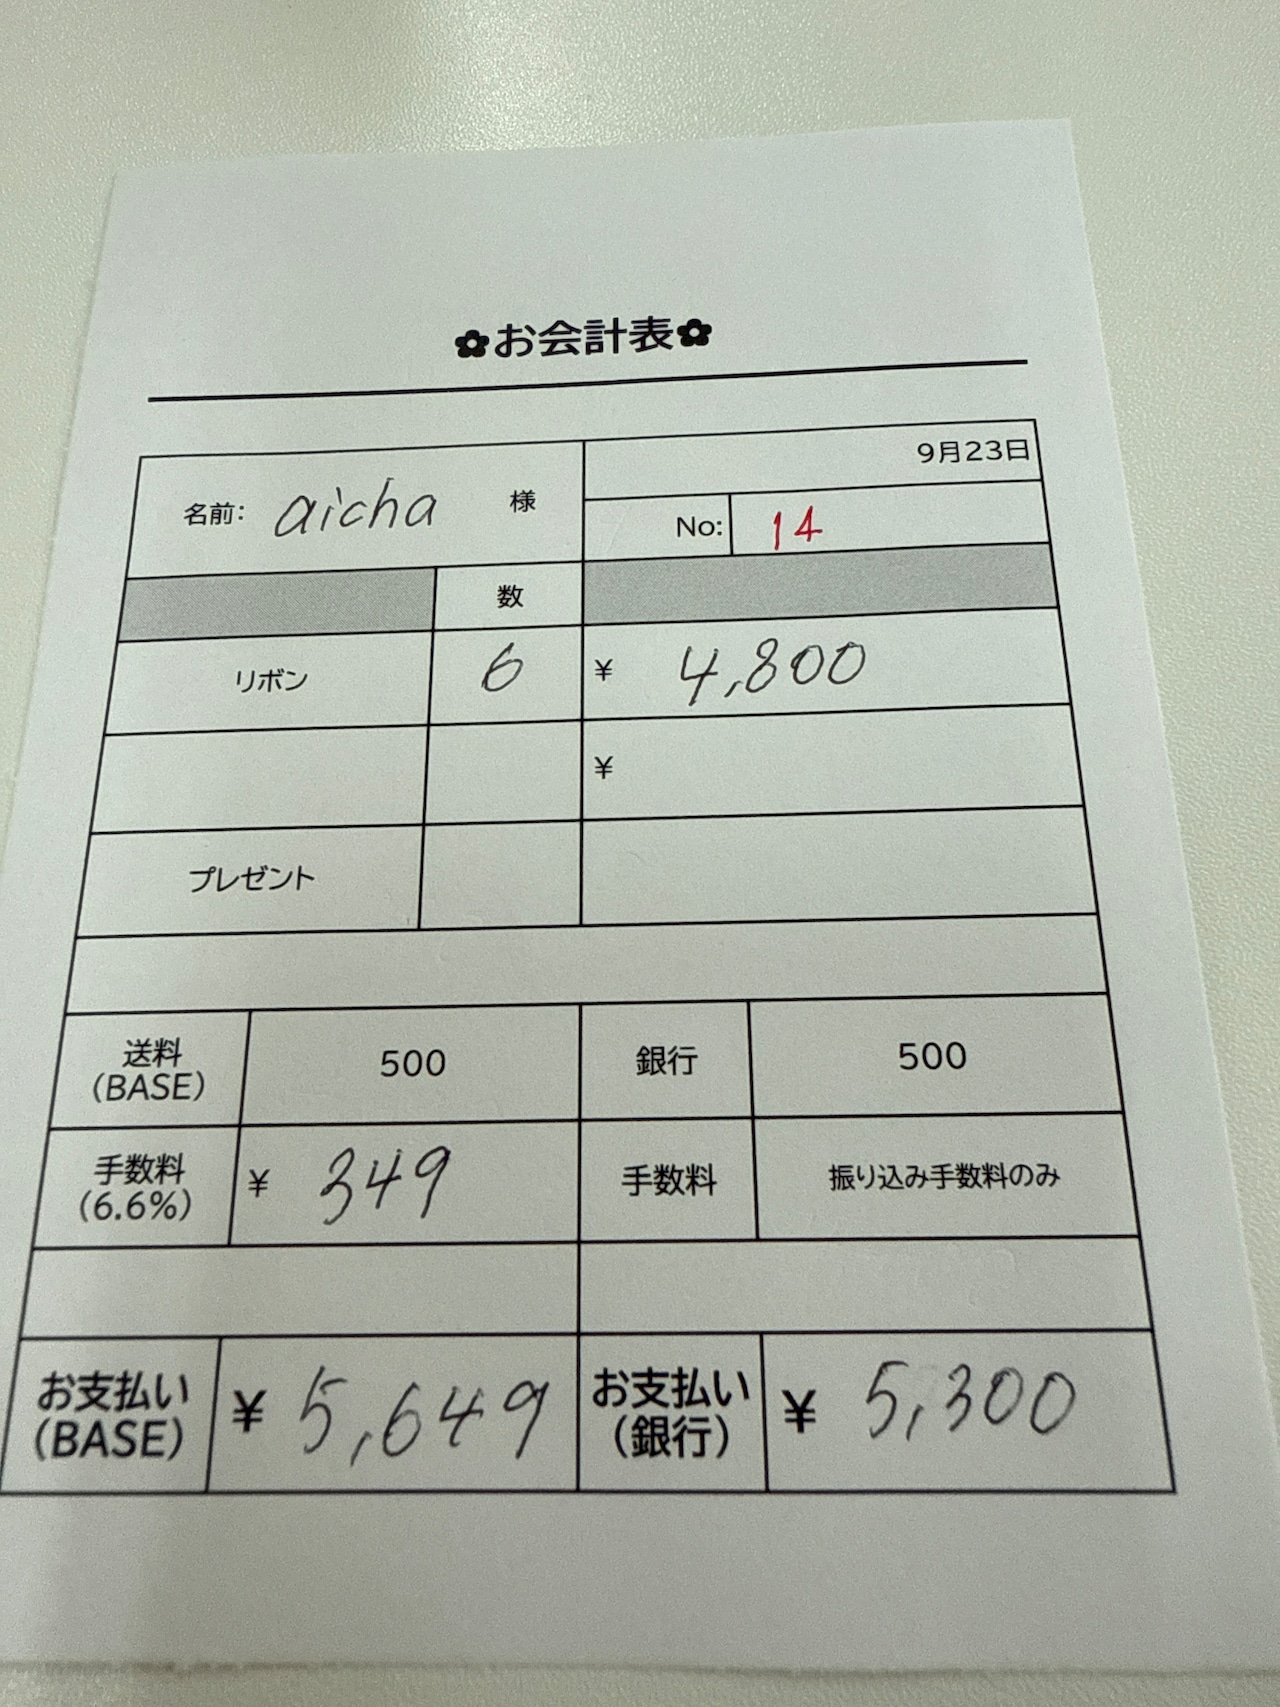 ✿お会計表✿
9月23日
名前: aicha 様
No: 14
数
リボン 6 ¥ 4,800
¥
プレゼント
送料(BASE) 500 銀行 500
手数料(6.6%) ¥ 349 手数料 振り込み手数料のみ
お支払い(BASE) ¥ 5,649 お支払い(銀行) ¥ 5,300